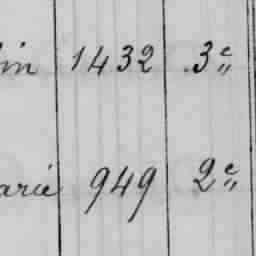 in 1432 3e
arie 949 2e